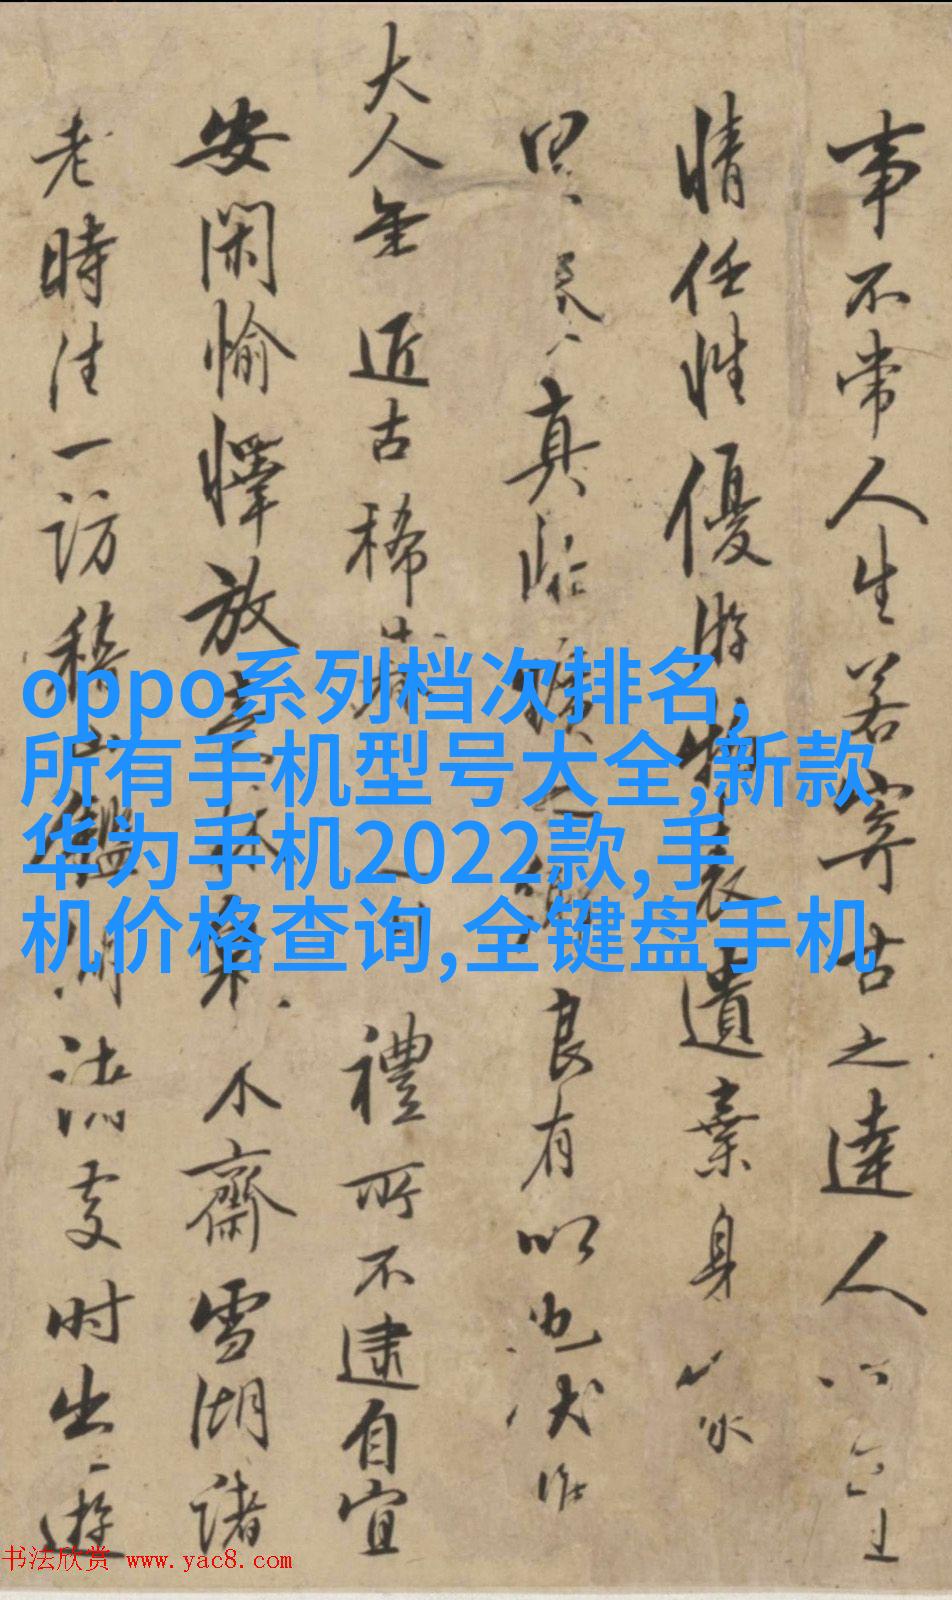 事不常人生若寄古之達人
情任性優游物表遺棄身
真臨 良有以也
大人年近古稀 禮所不逮自宜
安閑愉懌放 木齋雪湖諸
老時往一訪稽山鑑湖諸處时出一遊
oppo系列档次排名,
所有手机型号大全,新款
华为手机2022款,手
机价格查询,全键盘手机
书法欣赏 www.yac8.com